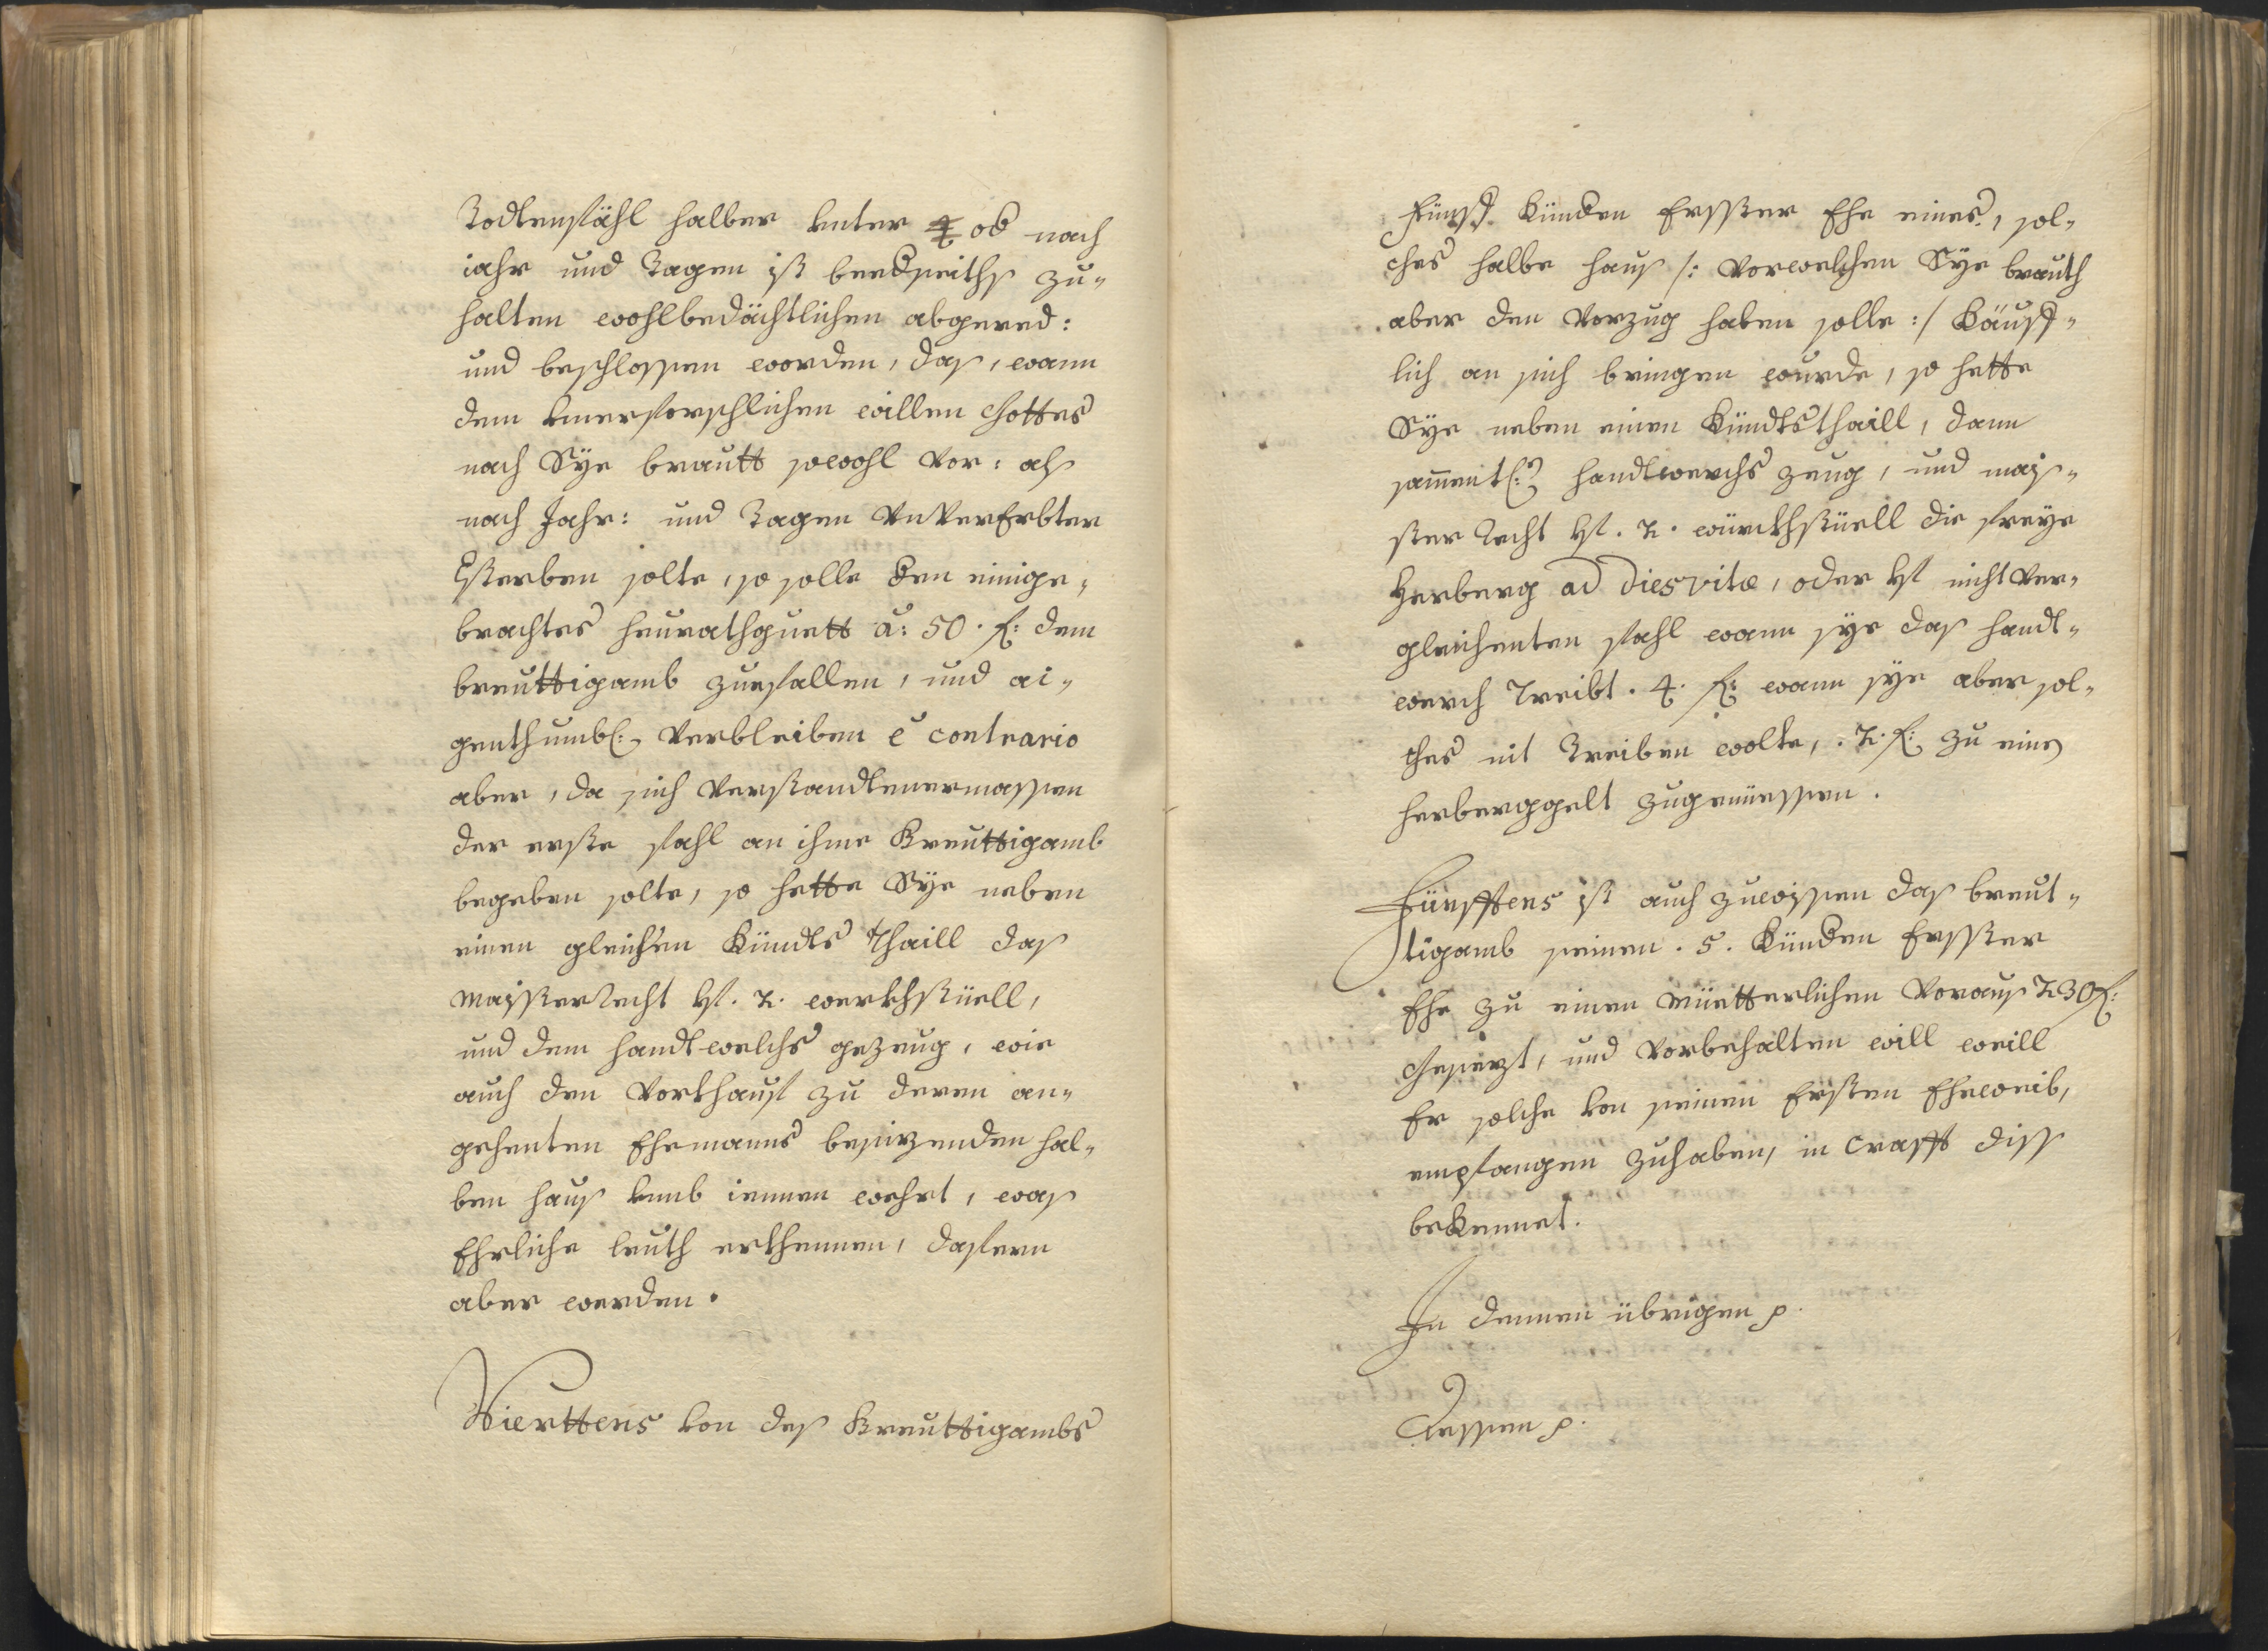 Todtenfähl halber unter 4 ob nach
iahr und Tagen ist beedseiths zu„
halten wohlbedächtlichen abgered:
und beschlossen worden, das, wann
dem unerforschlichen willen Gottes
nach Sÿe brautt sowohl Vor: als
nach Jahr: und Tagen UnVerErbter
Ersterben solte, so solle den einige„
brachtes heurathguett à: 50. f: dem
breuttigamb zuefallen, und ai„
genthumbl: Verbleiben è contrario
aber, da sich Verstandtenermassen
der erste fahl an ihme Breuttigamb
begeben solte, so hette Sÿe neben
einen gleichen Kündts Thaill das
Maisterrecht et. 2. werkhstüell,
und dem handtwelchs gezeug, wie
auch den Vorkhauf zu deren an„
gehenten Ehemanns besizenden hal„
ben haus umb iennen wehrt, was
Ehrliche leuth erkhennen, dafern
aber werden.
Vierttens von des Breuttigambs
Fünff Künden Ersster Ehe eines, sol„
ches halbe haus /: Vorwelchen Sÿe brauth
aber den Vorzug haben solle :/ Käuff„
lich an sich bringen wurde, so hette
Sÿe neben einen Kündtsthaill, dann
sammentl: handtwerchs zeug, und mais„
ster Recht et. 2. würckhstüell die freÿe
Herberg ad dies vitæ, oder et nicht Ver„
gleichenten fahl wann sÿe das handt„
werch Treibt. 4. f: wann sÿe aber sol„
ches nit Treiben wolte, . 2. f: zu eine
herberggelt zugenüessen.
Fünfftens ist auch zuwissen das breut„
tigamb seinen. 5. Künden Ersster
Ehe zu einen Müetterlichen Voraus 230 f:
Gesezt, und Vorbehalten will weill
Er solche von seinen Ersten Eheweib,
empfangen zuhaben, in Crafft diss
bekennet.
In dennen übrigen p.
Dessen p.